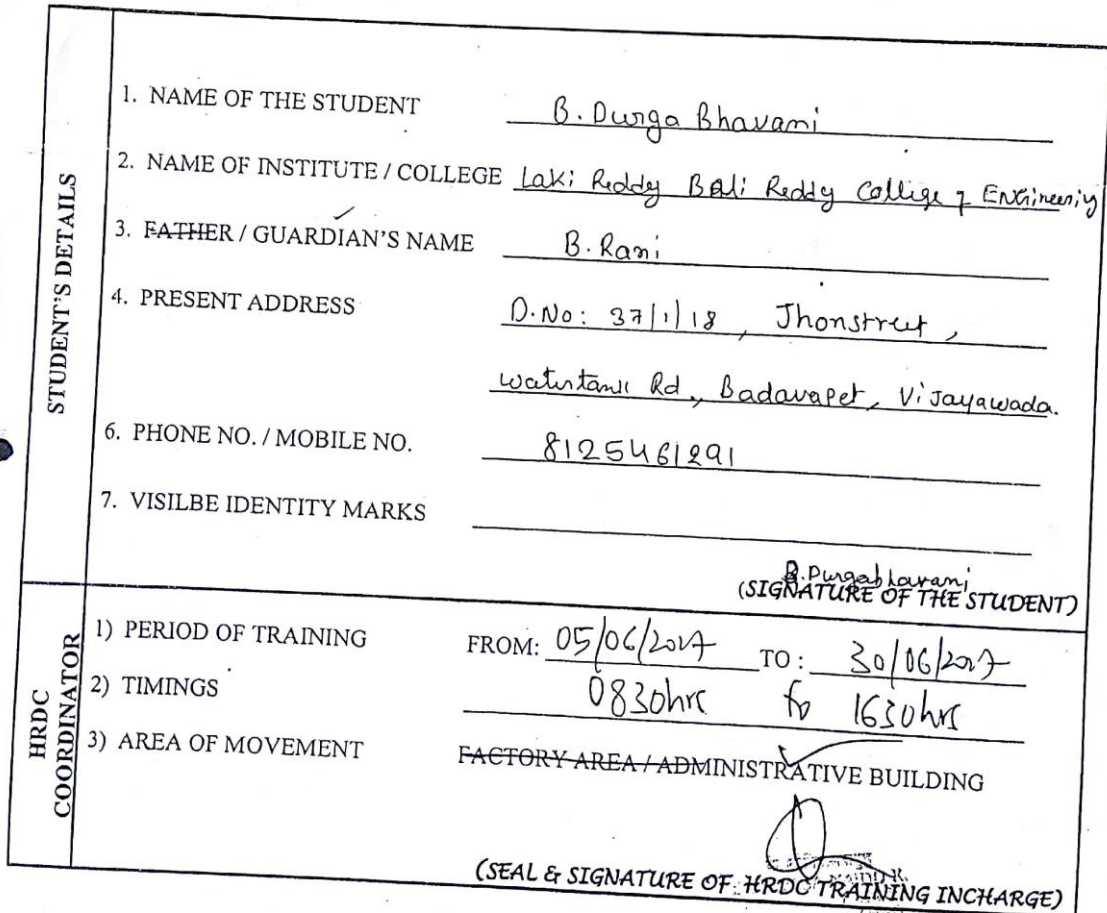 STUDENT'S DETAILS
1. NAME OF THE STUDENT B. Durga Bhavani
2. NAME OF INSTITUTE / COLLEGE Laki Reddy Bali Reddy College of Engineering
3. FATHER / GUARDIAN'S NAME B. Rani
4. PRESENT ADDRESS D.No: 37/1/18, Jhonstreet,
watertank Rd., Badavapet, Vijayawada.
6. PHONE NO. / MOBILE NO. 8125461291
7. VISILBE IDENTITY MARKS
B. Durgabhavani
(SIGNATURE OF THE STUDENT)
HRDC COORDINATOR
1) PERIOD OF TRAINING FROM: 05/06/2017 TO: 30/06/2017
2) TIMINGS 0830hrs to 1630hrs
3) AREA OF MOVEMENT FACTORY AREA / ADMINISTRATIVE BUILDING
(SEAL & SIGNATURE OF HRDC TRAINING INCHARGE)